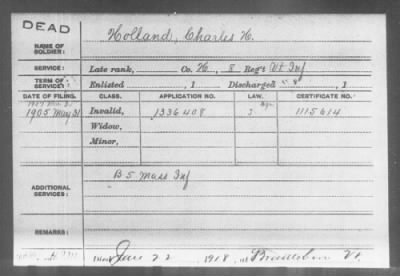 DEAD
NAME OF SOLDIER: Holland, Charles H.
SERVICE: Late rank, Co. H, 8 Reg't Vt Inf
TERM OF SERVICE: Enlisted , 1 Discharged , 1
DATE OF FILING. CLASS. APPLICATION NO. LAW. CERTIFICATE NO.
1905 May 31 Invalid, 1336408 1115614
Widow,
Minor,
ADDITIONAL SERVICES: B 5 Mass Inf
REMARKS:
Died 22, 1918, at Brattleboro Vt.